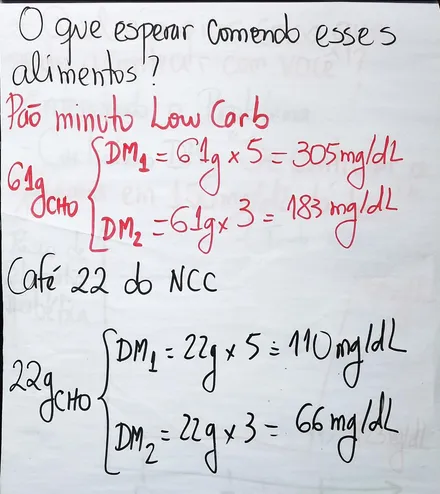 O que esperar comendo esses
alimentos?
Pão minuto Low Carb
61g CHO
DM1 = 61g x 5 = 305mg/dL
DM2 = 61g x 3 = 183 mg/dL
Café 22 do NCC
22g CHO
DM1 = 22g x 5 = 110mg/dL
DM2 = 22g x 3 = 66mg/dL